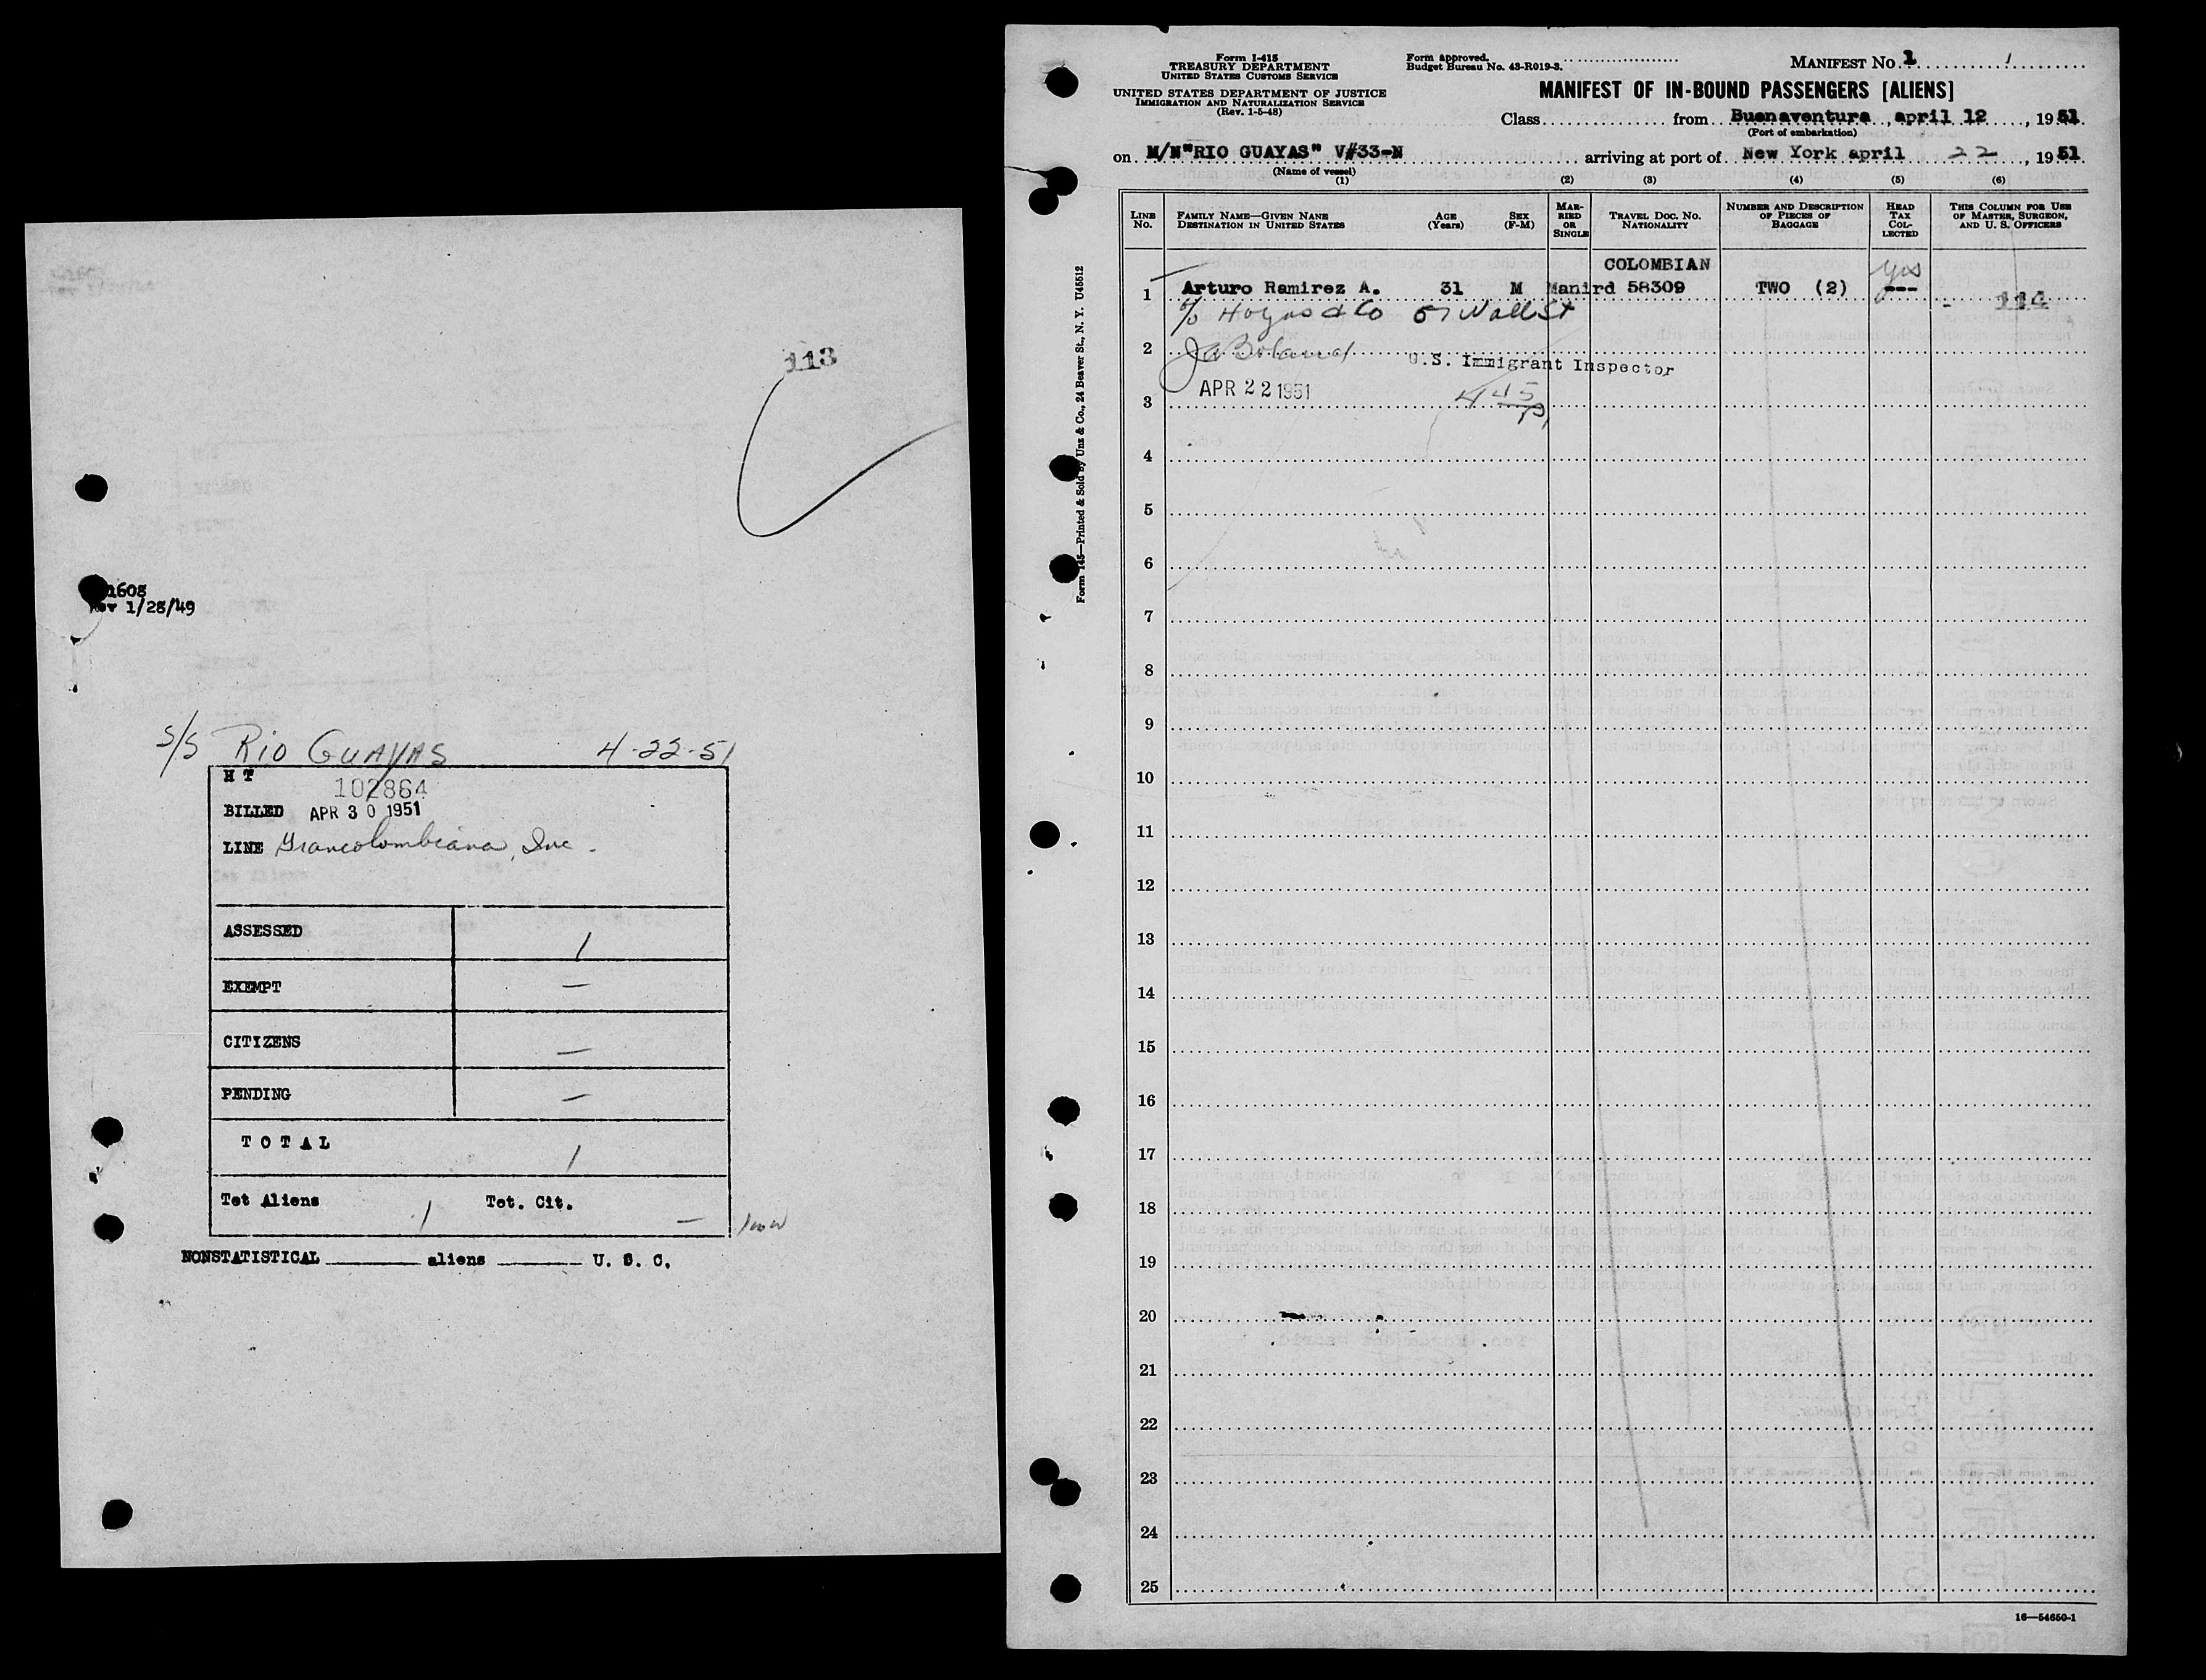 113
1608
Rev 1/28/49
S/S Rio Guayas 4-22-51
H T
102864
BILLED APR 30 1951
LINE Grancolombiana, Inc.
ASSESSED 1
EXEMPT —
CITIZENS —
PENDING —
TOTAL 1
Tot Aliens 1 Tot. Cit. —
NONSTATISTICAL ________ aliens ________ U. S. C.
Form I-415
TREASURY DEPARTMENT
UNITED STATES CUSTOMS SERVICE
UNITED STATES DEPARTMENT OF JUSTICE
IMMIGRATION AND NATURALIZATION SERVICE
(Rev. 1-5-48)
Form approved.
Budget Bureau No. 43-R019-3.
MANIFEST No. 1 1
MANIFEST OF IN-BOUND PASSENGERS [ALIENS]
Class from Buenaventura, april 12, 1951
(Port of embarkation)
on M/N "RIO GUAYAS" V#33-N arriving at port of New York april 22, 1951
(Name of vessel)
(1) (2) (3) (4) (5) (6)
LINE No.
FAMILY NAME—GIVEN NAME
DESTINATION IN UNITED STATES
AGE (Years)
SEX (F-M)
MARRIED OR SINGLE
TRAVEL DOC. No. NATIONALITY
NUMBER AND DESCRIPTION OF PIECES OF BAGGAGE
HEAD TAX COLLECTED
THIS COLUMN FOR USE OF MASTER, SURGEON, AND U. S. OFFICERS
COLOMBIAN yes
1 Arturo Ramirez A. 31 M Manird 58309 TWO (2) ---
c/o Hoyos & Co 57 Wall St - 114
2 U.S. Immigrant Inspector
3 APR 22 1951
4
5
6
7
8
9
10
11
12
13
14
15
16
17
18
19
20
21
22
23
24
25
Form 145—Printed & Sold by Unz & Co., 24 Beaver St., N. Y. U45512
16—54650-1